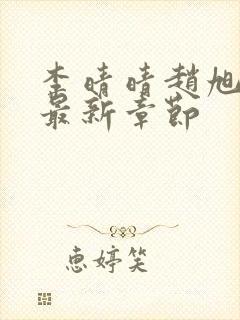 李晴晴趙旭
最新章節
惠婷笑